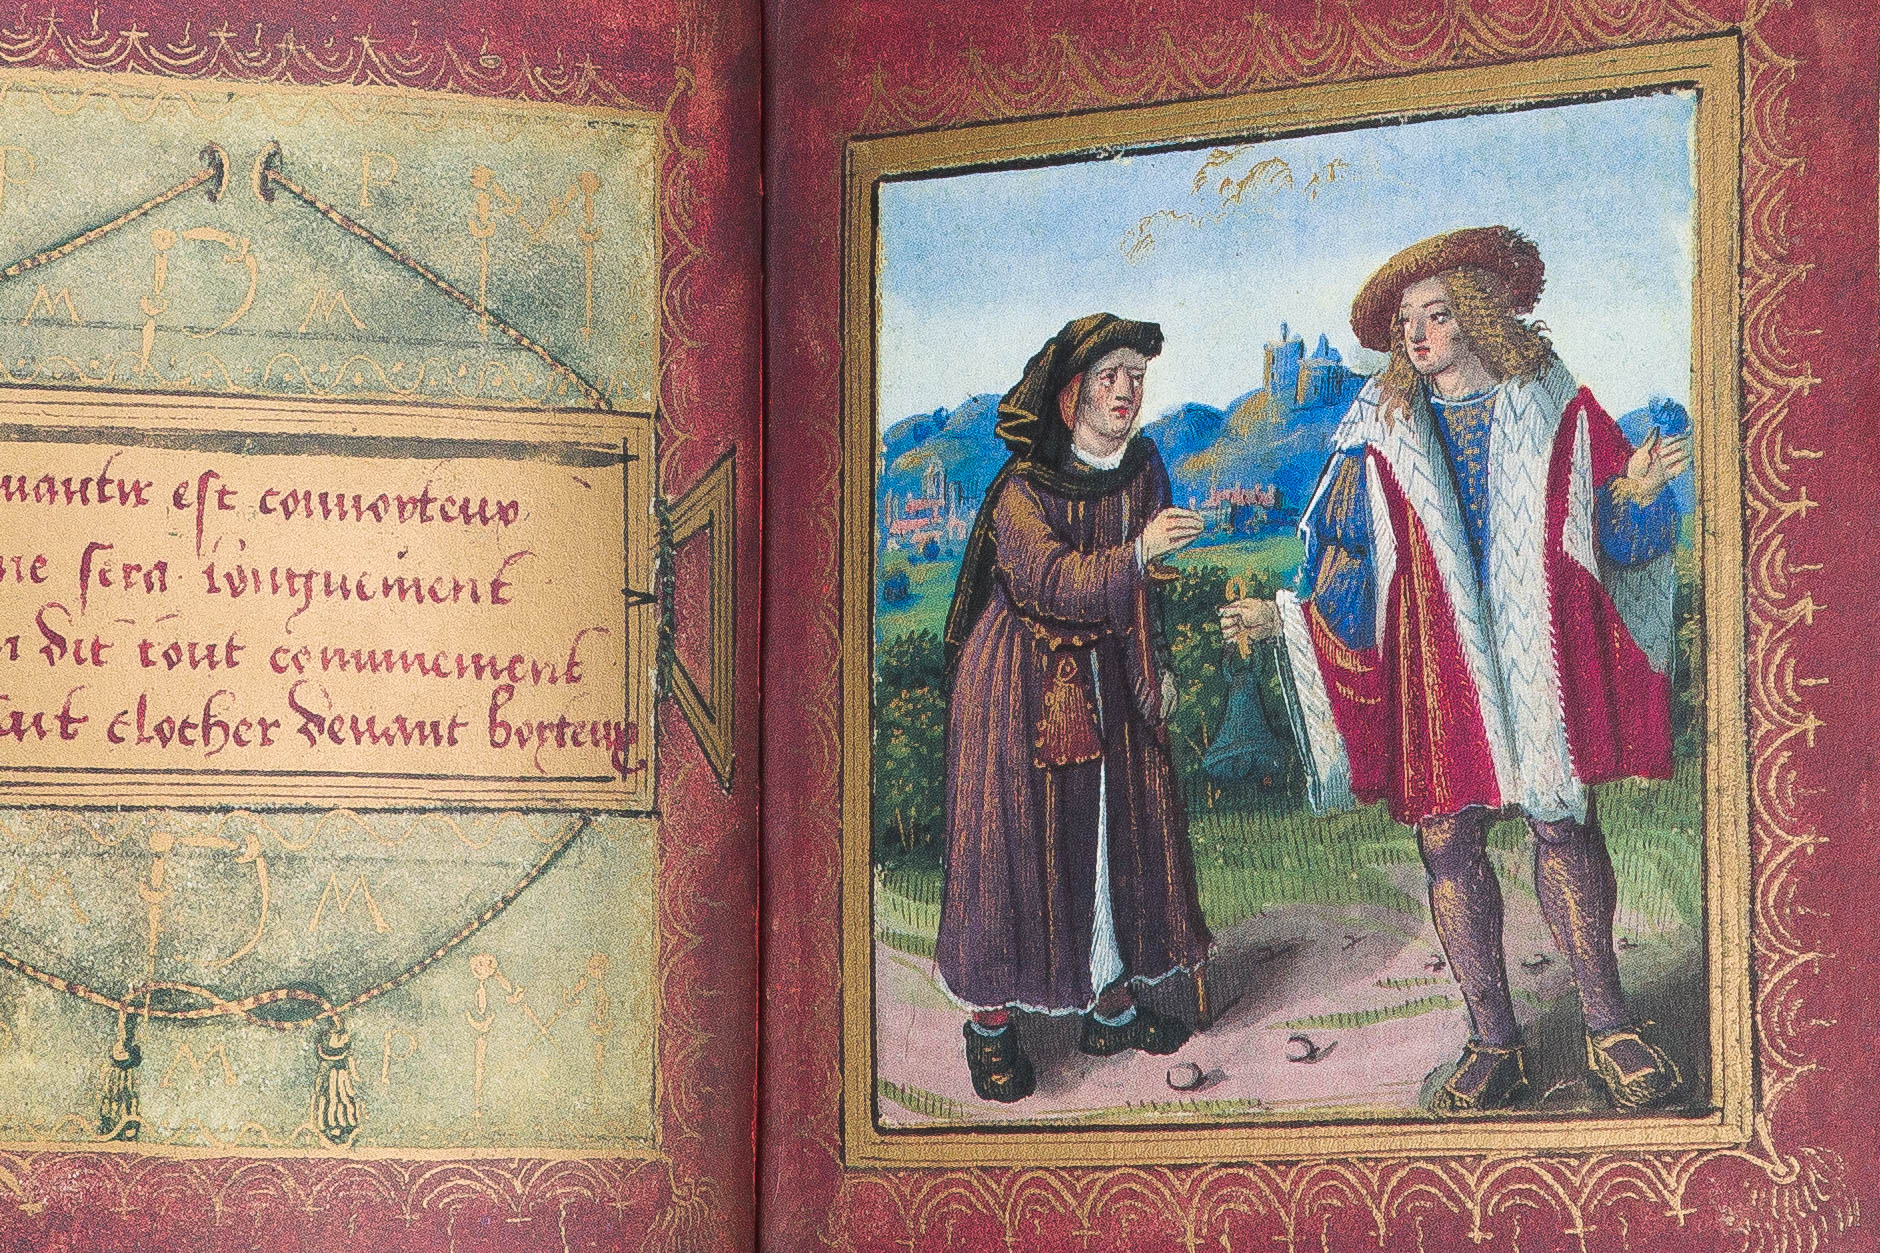 P P
M M
est convoyteux
ne sera longuement
dit tout communement
fait clocher devant boyteux
M M
M P